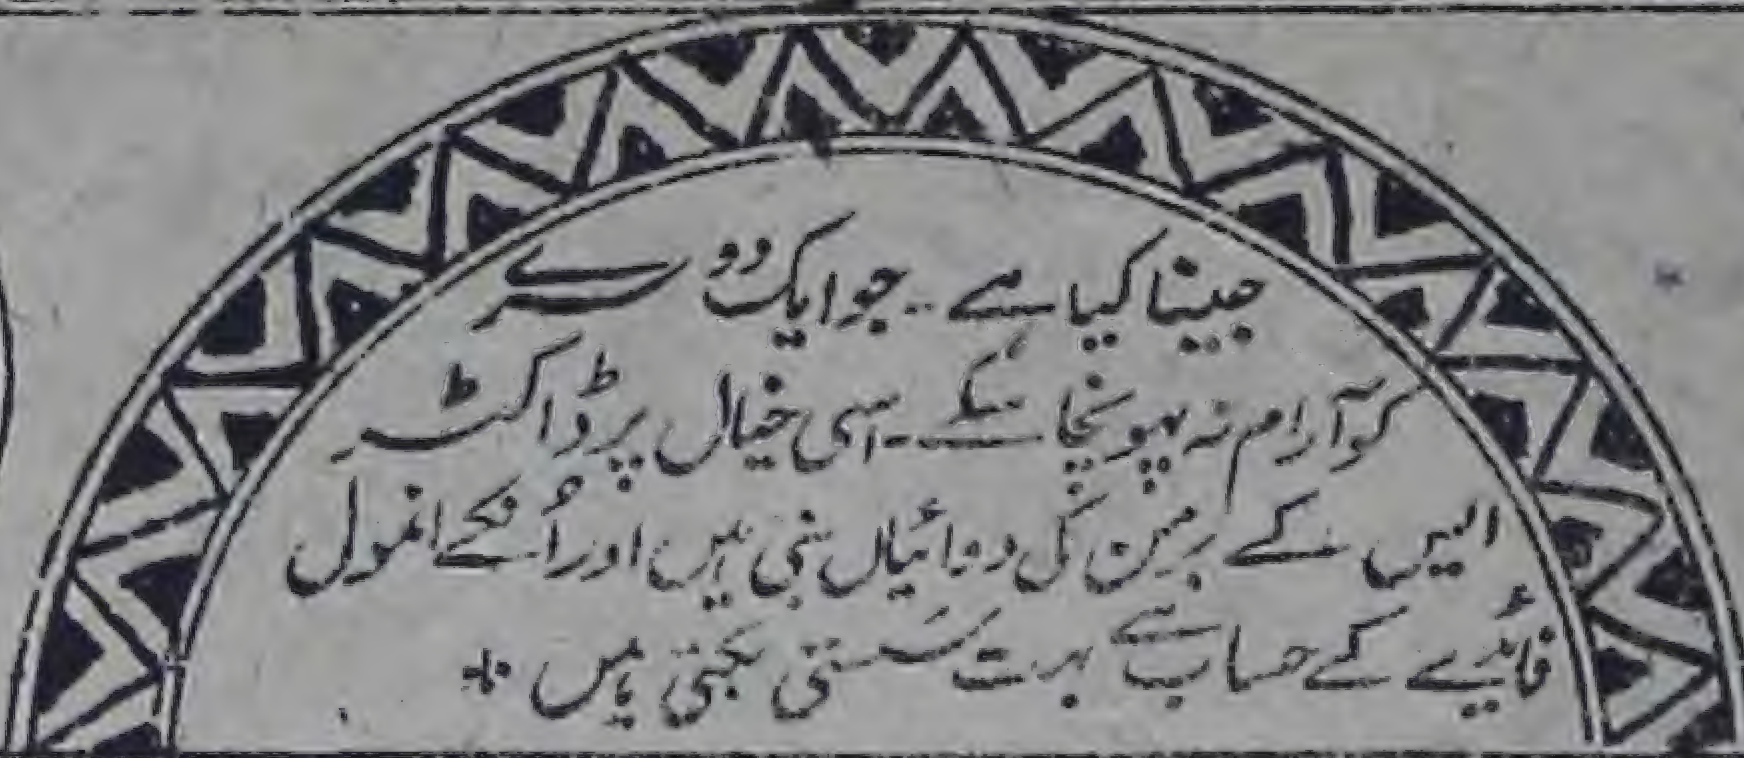 جینا کیا ہے۔ جو ایک دوسرے
کو آرام نہ پہونچا سکے۔ اسی خیال پر ڈاکٹر
ایس کے برمن کی دوائیاں بنی ہیں اور اُنکے انمول
فائیدے کے حساب سے بہت سَستی بکتی ہیں